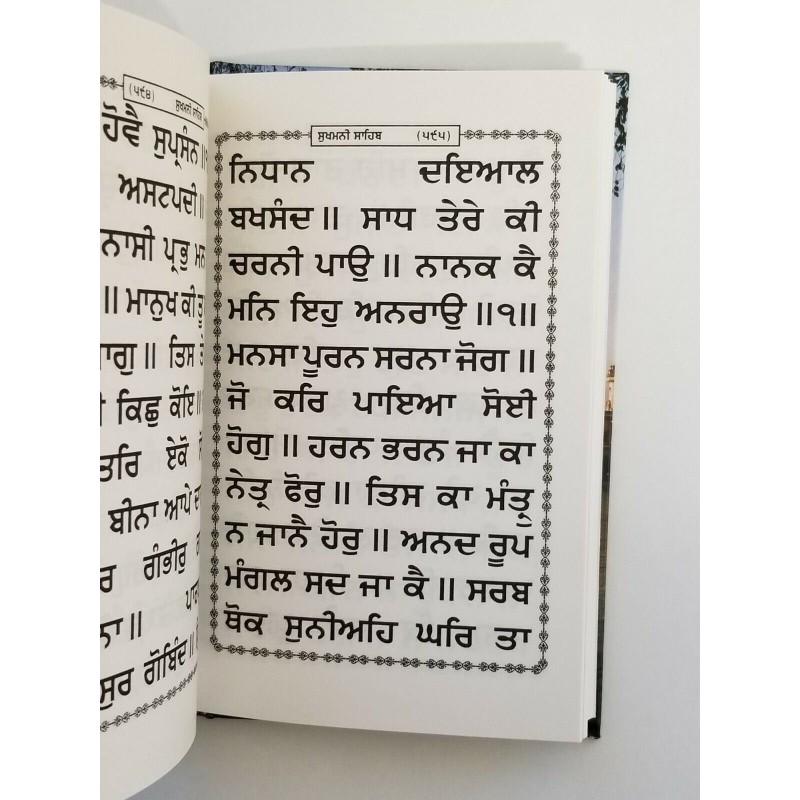 (੫੯੪) ਸੁਖਮਨੀ ਸਾਹਿਬ
ਹੋਵੈ ਸੁਪ੍ਰਸੰਨ
ਅਸਟਪਦੀ॥
ਪ੍ਰਭੁ
॥ ਮਾਨੁਖ ਕੀ ਤੂ
॥ ਤਿਸ ਤੇ
ਕਿਛੁ ਕੋਇ॥
ਏਕੋ
ਬੀਨਾ ਆਪੇ
ਗੰਭੀਰੁ
ਗੋਬਿੰਦ॥
ਸੁਖਮਨੀ ਸਾਹਿਬ (੫੯੫)
ਨਿਧਾਨ ਦਇਆਲ
ਬਖਸੰਦ॥ ਸਾਧ ਤੇਰੇ ਕੀ
ਚਰਨੀ ਪਾਉ॥ ਨਾਨਕ ਕੈ
ਮਨਿ ਇਹੁ ਅਨਰਾਉ॥੧॥
ਮਨਸਾ ਪੂਰਨ ਸਰਨਾ ਜੋਗ॥
ਜੋ ਕਰਿ ਪਾਇਆ ਸੋਈ
ਹੋਗੁ॥ ਹਰਨ ਭਰਨ ਜਾ ਕਾ
ਨੇਤ੍ਰ ਫੋਰੁ॥ ਤਿਸ ਕਾ ਮੰਤ੍ਰੁ
ਨ ਜਾਨੈ ਹੋਰੁ॥ ਅਨਦ ਰੂਪ
ਮੰਗਲ ਸਦ ਜਾ ਕੈ॥ ਸਰਬ
ਥੋਕ ਸੁਨੀਅਹਿ ਘਰਿ ਤਾ